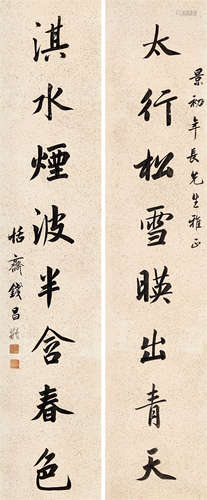 景初年長先生雅正
太行松雪暎出青天
淇水煙波半含春色
恬齋錢昌齡